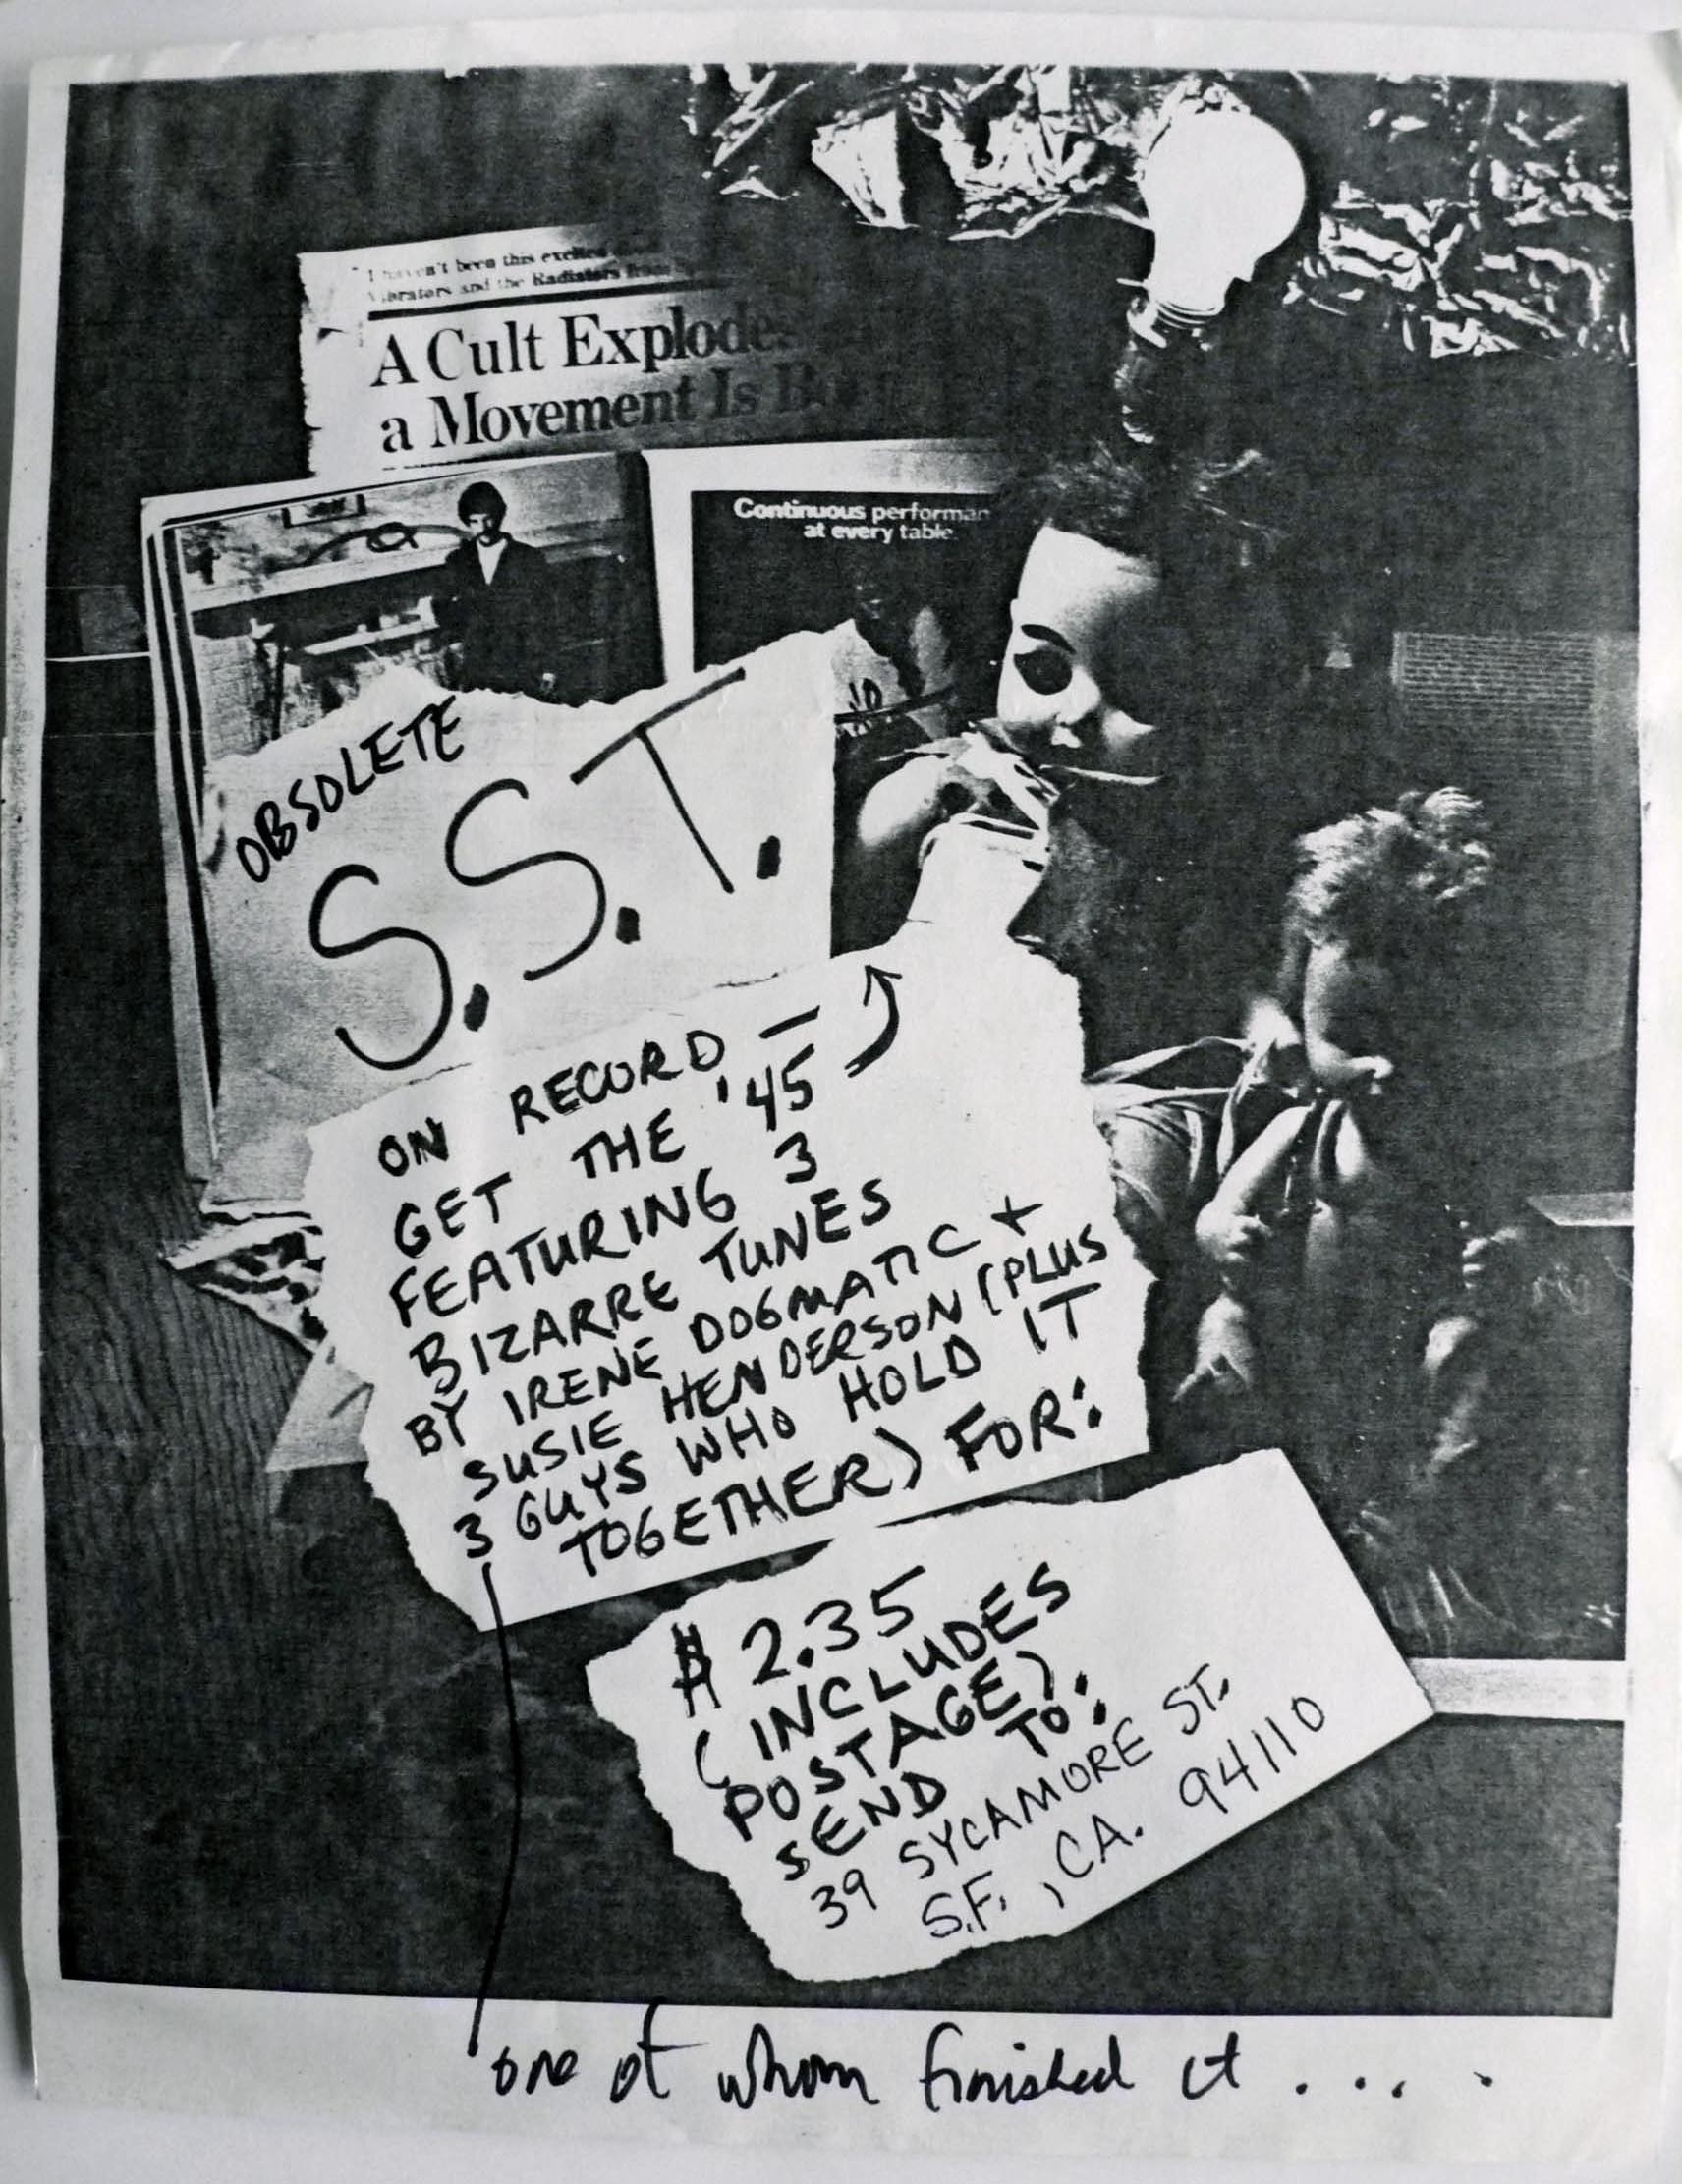 "I haven't been this excited
Vibrators and the Radiators from
A Cult Explodes
a Movement Is
Continuous
at every table.
OBSOLETE
S.S.T.
ON RECORD —
GET THE '45
FEATURING 3
BIZARRE TUNES
BY IRENE DOGMATIC +
SUSIE HENDERSON (PLUS
3 GUYS WHO HOLD IT
TOGETHER) FOR:
$2.35
(INCLUDES
POSTAGE).
SEND TO:
39 SYCAMORE ST.
S.F., CA. 94110
one of whom finished it . . . .